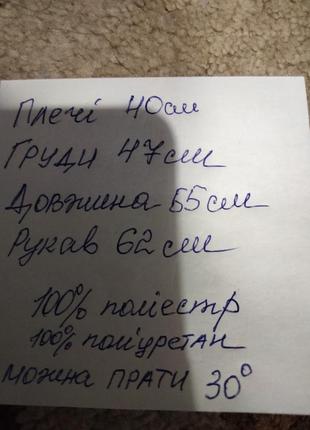 Плечі 40см
Груди 47см
Довжина 55см
Рукав 62см
100% поліестр
100% поліуретан
можна прати 30°